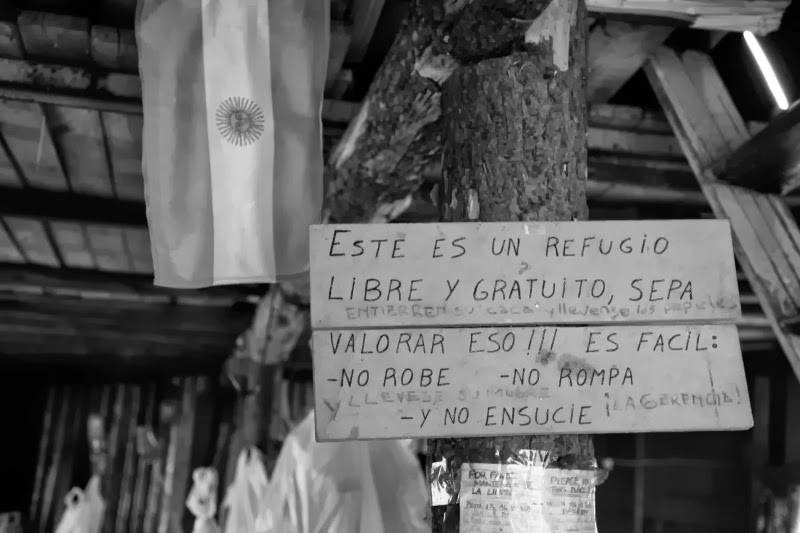 ESTE ES UN REFUGIO
LIBRE Y GRATUITO, SEPA
ENTIERREN su caca y llevense los papeles
VALORAR ESO!!! ES FACIL:
-NO ROBE -NO ROMPA
Y LLEVESE SU MUGRE
-Y NO ENSUCIE ¡LA GERENCIA!
POR FAVOR
LA
PLEASE